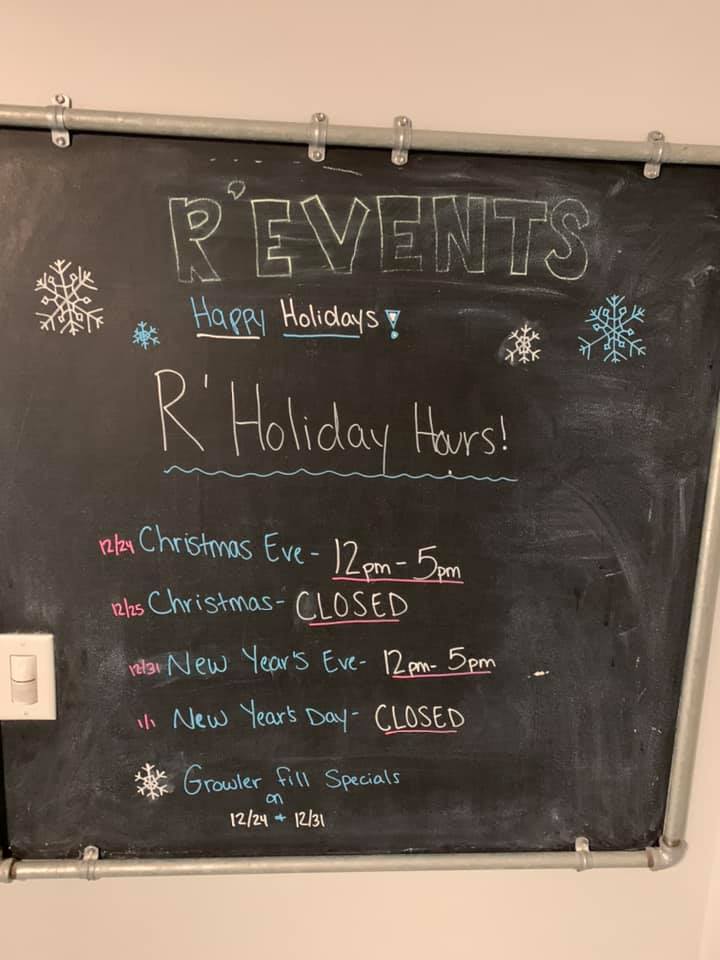 R'EVENTS
Happy Holidays!
R' Holiday Hours!
12/24 Christmas Eve - 12pm - 5pm
12/25 Christmas - CLOSED
12/31 New Year's Eve - 12pm - 5pm
1/1 New Year's Day - CLOSED
Growler fill Specials
on
12/24 + 12/31